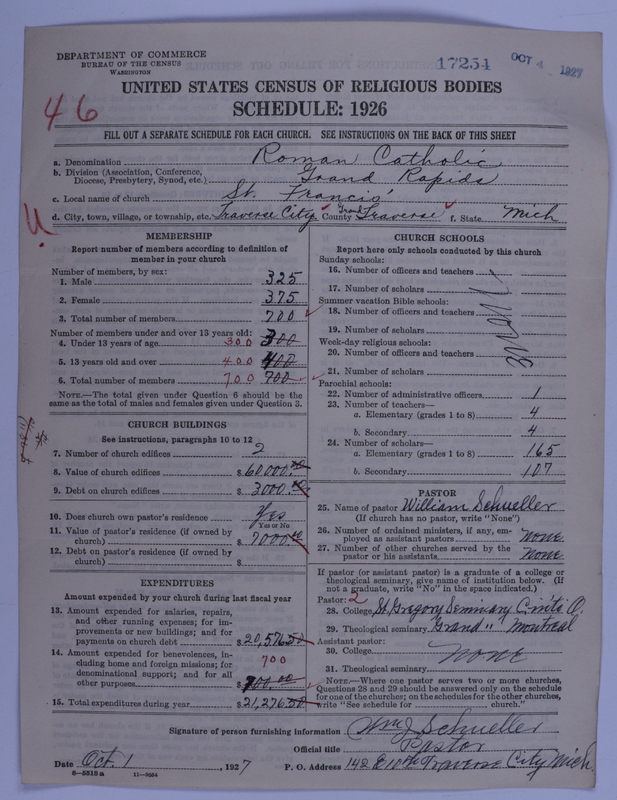 DEPARTMENT OF COMMERCE
BUREAU OF THE CENSUS
WASHINGTON
17254
OCT 4 1927
UNITED STATES CENSUS OF RELIGIOUS BODIES
SCHEDULE: 1926
46
FILL OUT A SEPARATE SCHEDULE FOR EACH CHURCH. SEE INSTRUCTIONS ON THE BACK OF THIS SHEET
a. Denomination Roman Catholic
b. Division (Association, Conference, Diocese, Presbytery, Synod, etc.) Grand Rapids
c. Local name of church St. Francis'
d. City, town, village, or township, etc. Traverse City, County Grand Traverse f. State Mich
U.
MEMBERSHIP
Report number of members according to definition of
member in your church
Number of members, by sex:
1. Male 325
2. Female 375
3. Total number of members 700
Number of members under and over 13 years old:
4. Under 13 years of age 300 300
5. 13 years old and over 400 400
6. Total number of members 700 700
NOTE.—The total given under Question 6 should be
same as the total of males and females given under Question 3.
CHURCH BUILDINGS
See instructions, paragraphs 10 to 12
7. Number of church edifices 2
8. Value of church edifices $ 60000.00
9. Debt on church edifices $ 3000.00
10. Does church own pastor's residence Yes
Yes or No
11. Value of pastor's residence (if owned by
church) $ 7000.00
12. Debt on pastor's residence (if owned by
church) $
EXPENDITURES
Amount expended by church during last fiscal year
13. Amount expended for salaries, repairs,
and other running expenses; for im-
provements or new buildings; and for
payments on church debt $ 20,576.50
14. Amount expended for benevolences, in-
cluding home and foreign missions; for
denominational support; and for all
other purposes $ 700.00
700
15. Total expenditures during year $ 21,276.50
CHURCH SCHOOLS
Report here only schools conducted by this church
Sunday schools:
16. Number of officers and teachers
17. Number of scholars
Summer vacation Bible schools:
18. Number of officers and teachers
19. Number of scholars
Week-day religious schools:
20. Number of officers and teachers
21. Number of scholars
None
Parochial schools:
22. Number of administrative officers 1
23. Number of teachers—
a. Elementary (grades 1 to 8) 4
b. Secondary 4
24. Number of scholars—
a. Elementary (grades 1 to 8) 165
b. Secondary 107
PASTOR
25. Name of pastor William Schueller
(If church has no pastor, write "None")
26. Number of ordained ministers, if any, em-
ployed as assistant pastors None
27. Number of other churches served by the
pastor or his assistants None
If pastor (or assistant pastor) is a graduate of a college or
theological seminary, give name of institution below. (If
not a graduate, write "No" in the space indicated.)
Pastor: 2
28. College St. Gregory Seminary Cinti O.
29. Theological seminary "Grand" " Montreal
Assistant pastor:
30. College None
31. Theological seminary
NOTE.—Where one pastor serves two or more churches,
Questions 28 and 29 should be answered only on the schedule
for one of the churches; on the schedules for the other churches,
write "See schedule for church."
Signature of person furnishing information Wm J Schueller
Official title Pastor
Date Oct. 1, 1927 P. O. Address 142 E 10th Traverse City Mich.
8—5518a 11—9684